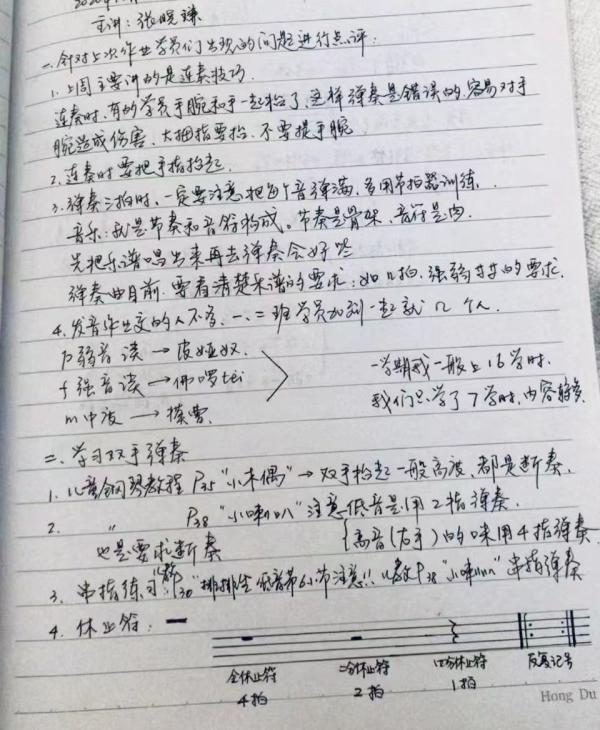 主讲：张晓臻
一.针对上次作业学员们出现的问题进行点评：
1.上周主要讲的是连奏技巧.
连奏时,有的学员手腕和手一起抬了,这样弹奏是错误的,容易对手
腕造成伤害,大拇指要抬,不要提手腕
2.连奏时要把手指抬起.
3.弹奏三拍时,一定要注意把每个音弹满,多用节拍器训练.
音乐:就是节奏和音符构成。节奏是骨架,音符是肉.
先把乐谱唱出来再去弹奏会好些
弹奏曲目前,要看清楚乐谱的要求:如几拍,强弱等等的要求.
4.发音作业交的人不多,一、二班学员加到一起就几个人.
p弱音读→皮娅奴.
f强音读→佛啰tei
m中被→揉曹.
一学期我一般上16学时.
我们已学了7学时,内容较多
二.学习双手弹奏
1.儿童钢琴教程 P35"小木偶"→双手抬起一般高度,都是断奏.
2. 〃 P38"小喇叭"注意低音是用2指弹奏.
也是要求断奏
{高音(右手)的咪用4指弹奏
3.串指练习:儿教P30"排排坐 低音第6小节注意!!儿教P38"小喇叭"串指弹奏
4.休止符:
全休止符 二分休止符 四分休止符 反复记号
4拍 2拍 1拍
Hong Du